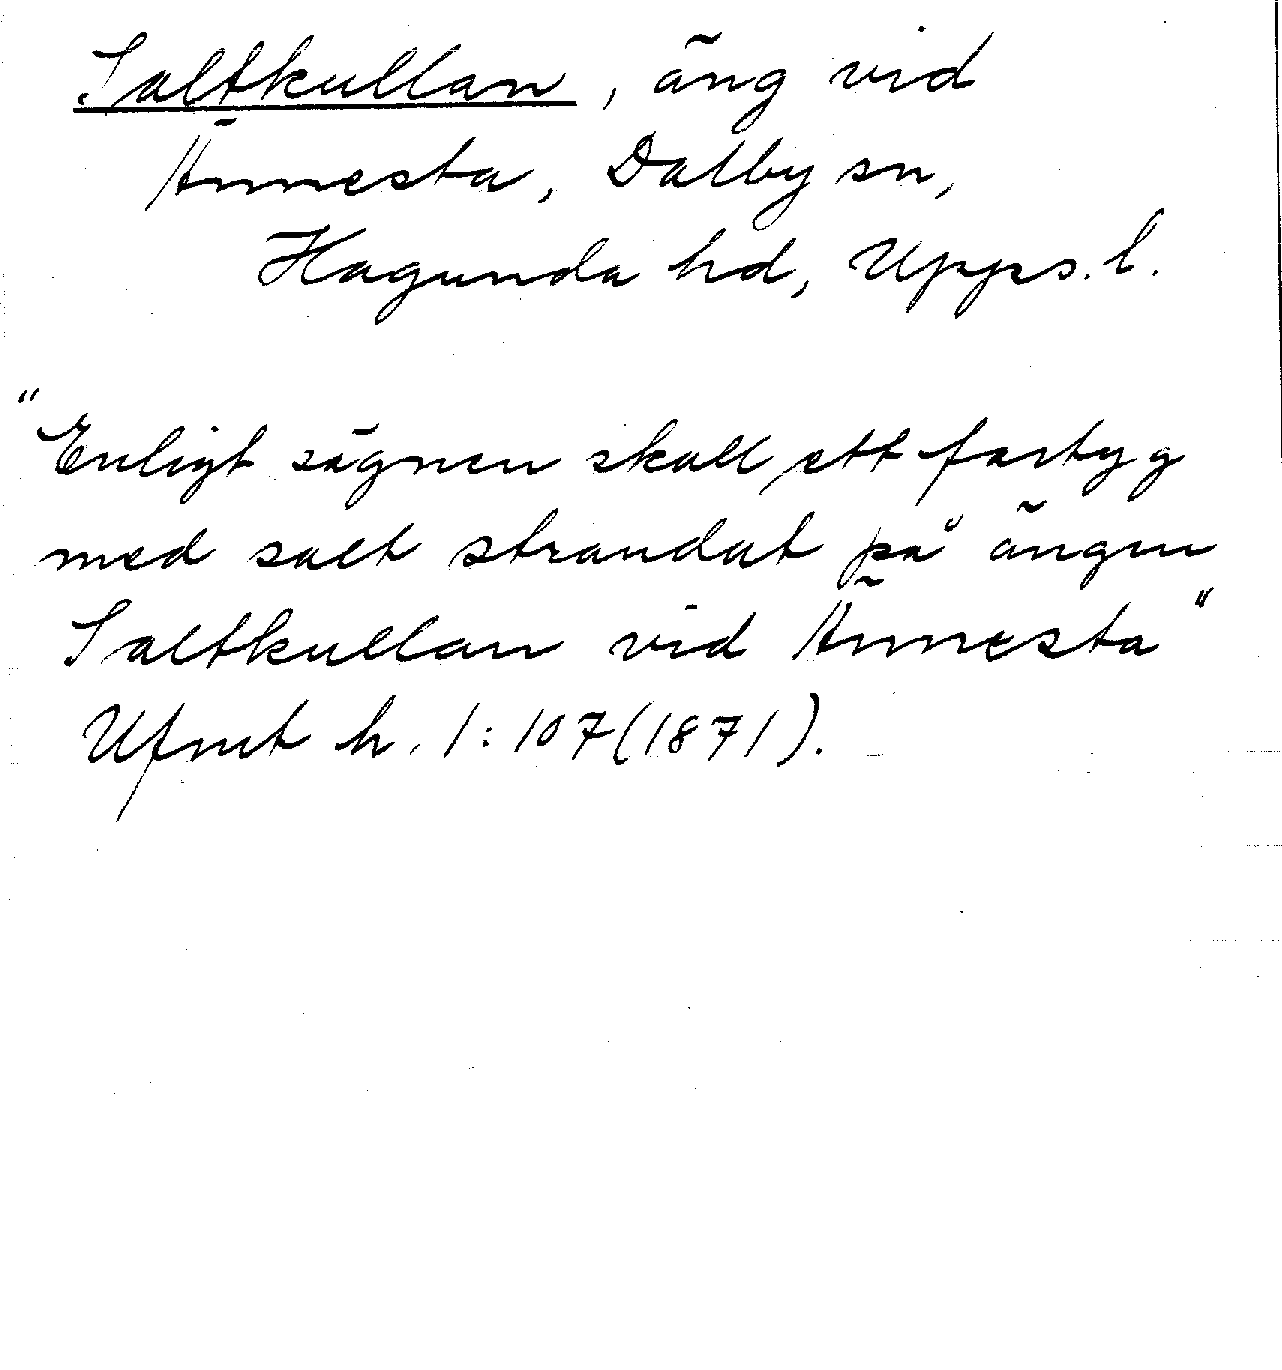 Saltkullan, äng vid
Ännesta, Dalby sn,
Hagunda hd, Upps. l.
"Enligt sägnen skall ett fartyg
med salt strandat på ängen
Saltkullan vid Ännesta"
Ufmt h. 1:107(1871).